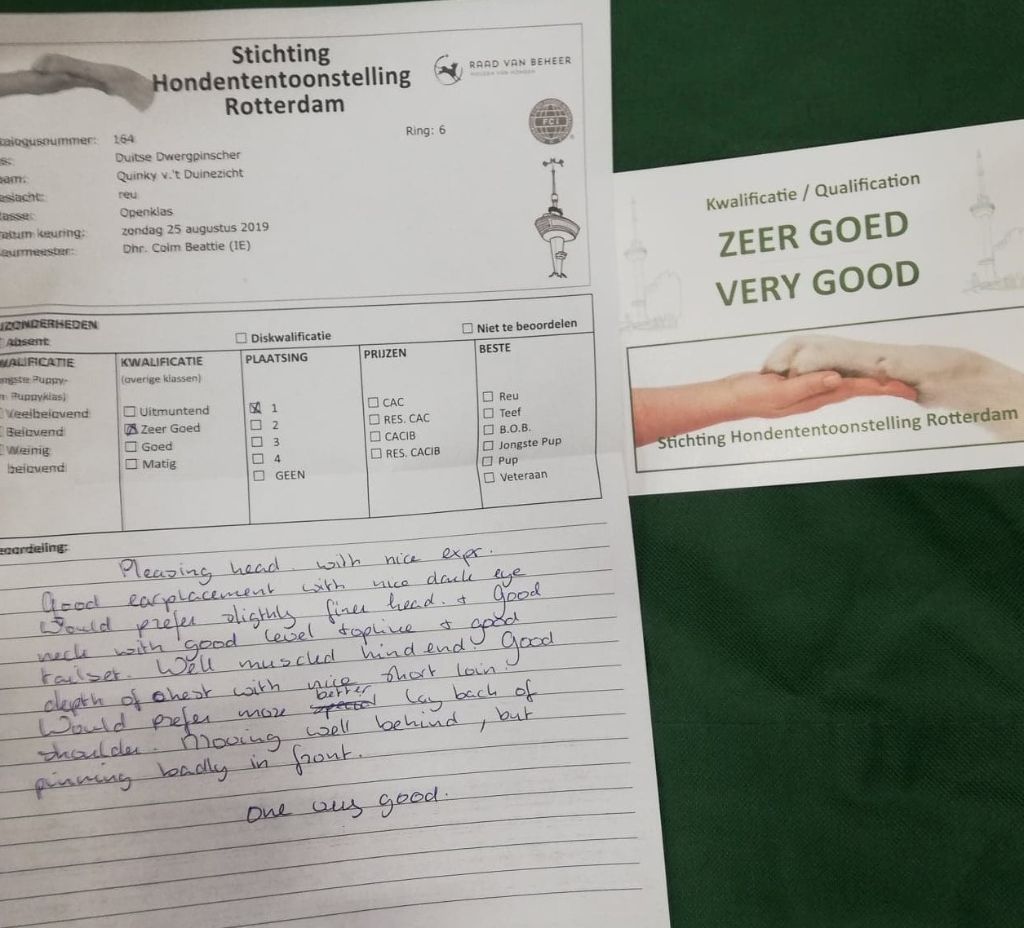 Stichting
Hondententoonstelling
Rotterdam
RAAD VAN BEHEER
FCI
talogusnummer: 164
Ring: 6
s: Duitse Dwergpinscher
am: Quinky v.'t Duinezicht
eslacht: reu
asse: Openklas
atum keuring: zondag 25 augustus 2019
eurmeester: Dhr. Colm Beattie (IE)
JZONDERHEDEN
Absent
Diskwalificatie
Niet te beoordelen
WALIFICATIE
ngste Puppy-
n Puppyklas)
Veelbelovend
Belovend
Weinig
belovend
KWALIFICATIE
(overige klassen)
Uitmuntend
Zeer Goed
Goed
Matig
PLAATSING
1
2
3
4
GEEN
PRIJZEN
CAC
RES. CAC
CACIB
RES. CACIB
BESTE
Reu
Teef
B.O.B.
Jongste Pup
Pup
Veteraan
eoordeling:
Pleasing head. with nice expr.
Good earplacement with nice dark eye
Would prefer slighthly finer head. + Good
neck with good level topline + good
tailset. Well muscled hind end. Good
depth of chest with nice short loin.
Would prefer more better lay back of
shoulder. Moving well behind, but
pinning badly in front.
One very good.
Kwalificatie / Qualification
ZEER GOED
VERY GOOD
Stichting Hondententoonstelling Rotterdam